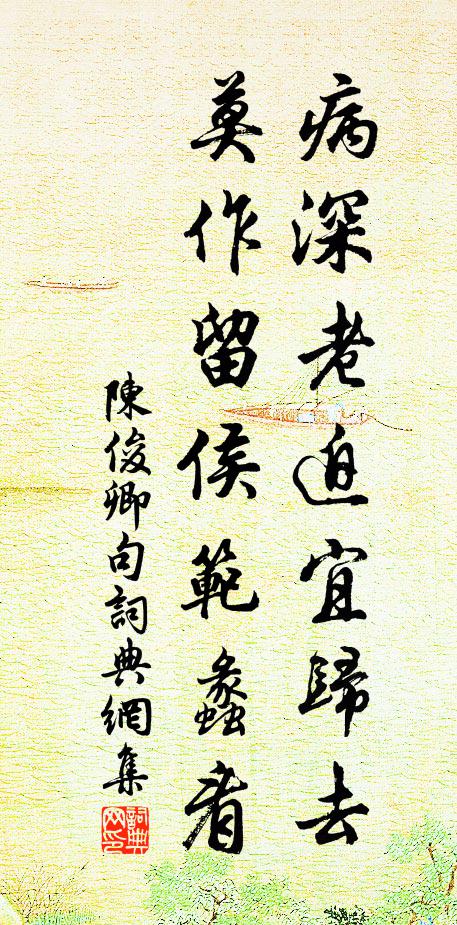 病深老迫宜歸去
莫作留侯範蠡看
陳俊卿句詞典網集
詞典网印